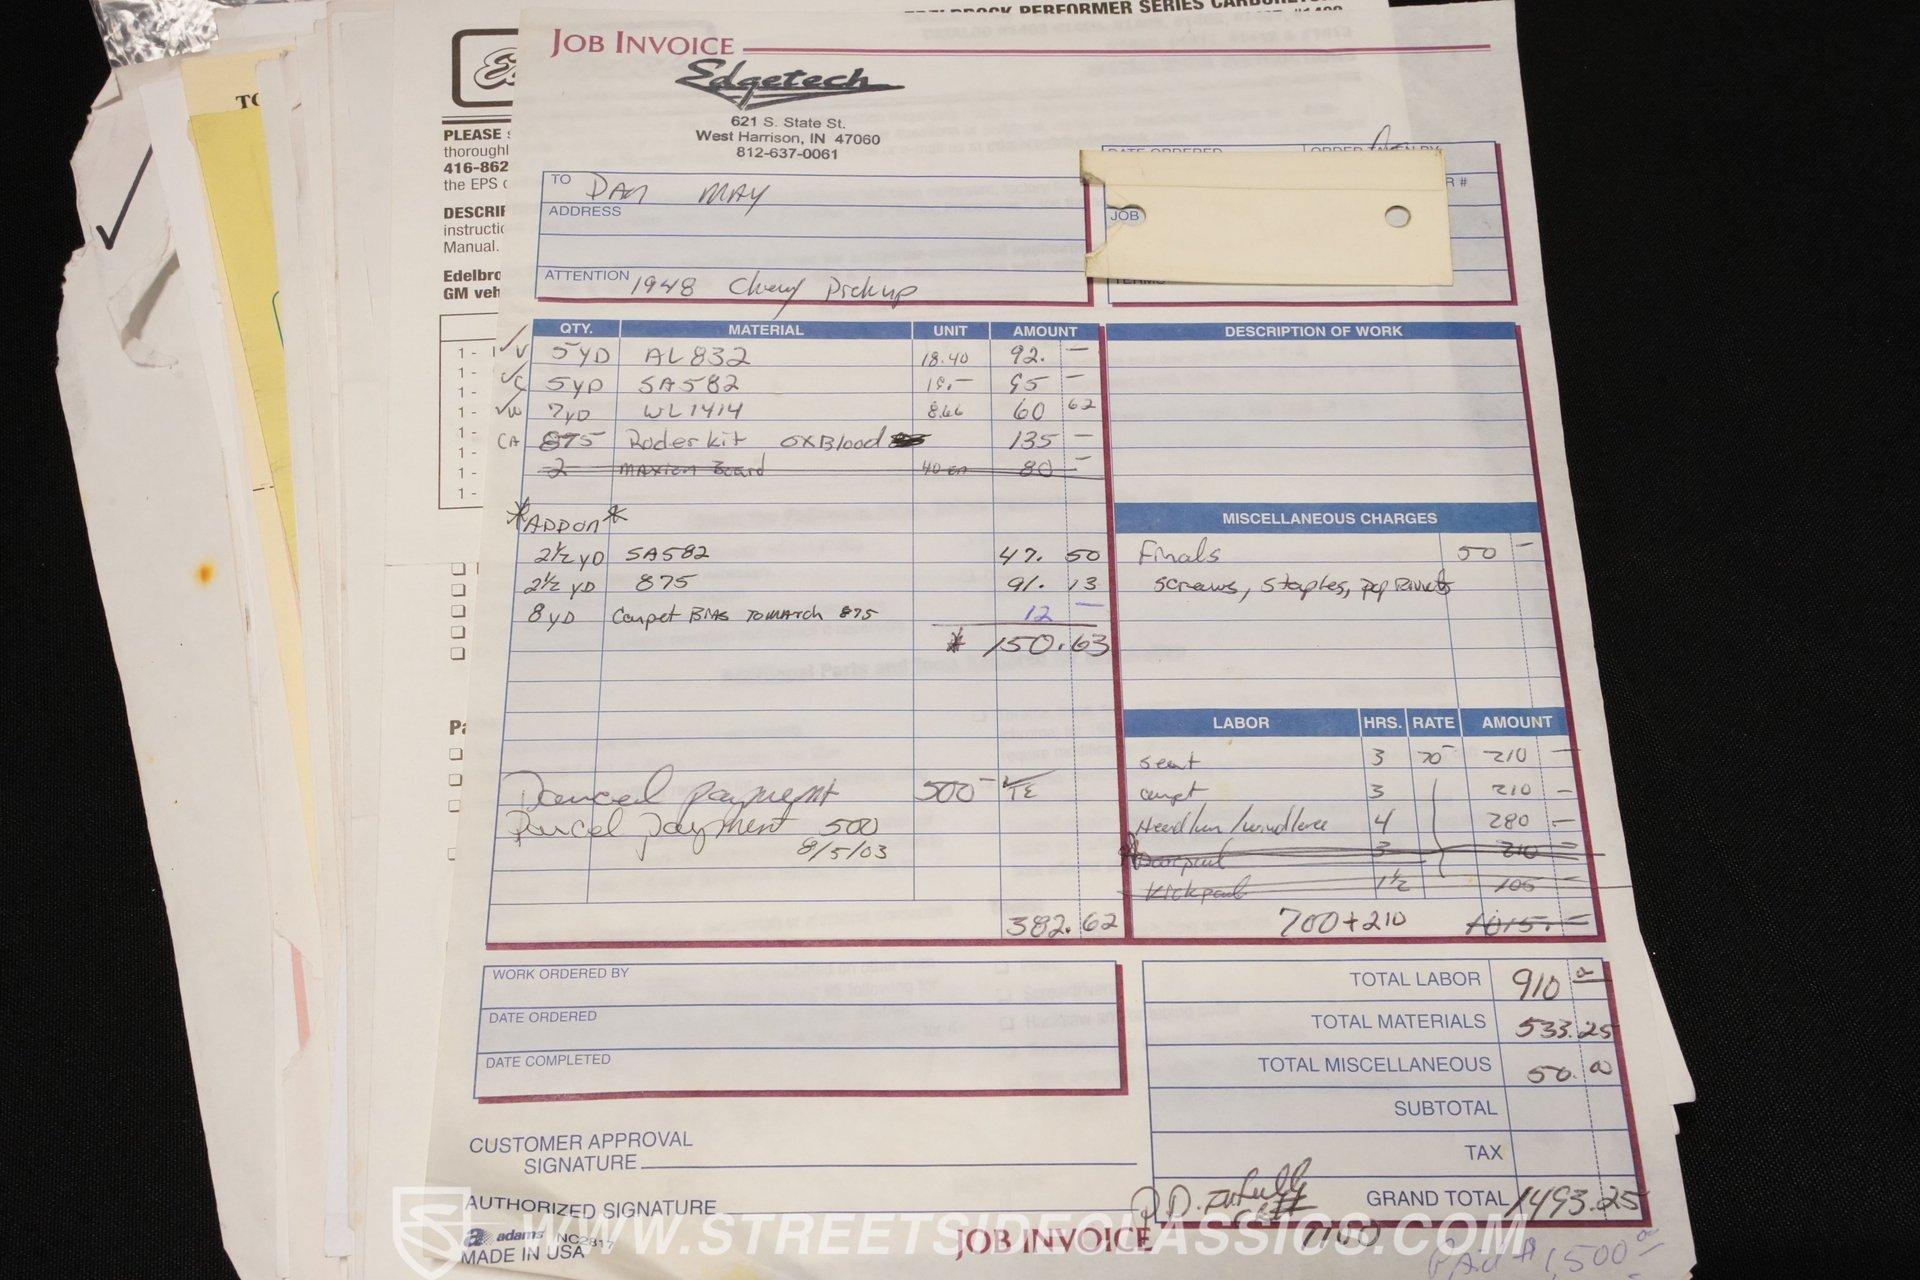 PERFORMER SERIES
JOB INVOICE
Edgetech
621 S. State St.
West Harrison, IN 47060
812-637-0061
TO
PLEASE
thoroughl
416-862
the EPS
DESCRIP
instructio
Manual.
Edelbro
GM veh
TO DAN MAY
ADDRESS
ATTENTION 1948 Chevy Pickup
DATE ORDERED ORDER TAKEN BY
R #
JOB
TERMS
QTY. MATERIAL UNIT AMOUNT
V 5 YD AL832 18.40 92. —
C 5 YD SA582 19.— 95 —
W 7 YD WL1414 8.66 60 62
CA 875 Roder kit OXBlood 135 —
2 Board 40 EA 80 —
*ADDON*
2½ YD SA582 47. 50
2½ YD 875 91. 13
8 YD Carpet BIAS TO MATCH 875 12 —
* 150.63
payment 500 —
Parcel payment 500
8/5/03
382.62
DESCRIPTION OF WORK
MISCELLANEOUS CHARGES
Finals 50 —
Screws, Staples, Pop Rivets
LABOR HRS. RATE AMOUNT
Seat 3 70 — 210 —
carpt 3 210 —
4 280 —
3 210 —
Kickpanl 1½ 105 —
700+210 1015.—
WORK ORDERED BY
DATE ORDERED
DATE COMPLETED
TOTAL LABOR 910
TOTAL MATERIALS 533.25
TOTAL MISCELLANEOUS 50.00
SUBTOTAL
TAX
GRAND TOTAL 1493.25
CUSTOMER APPROVAL
SIGNATURE
AUTHORIZED SIGNATURE
P.D. In full
CK#
1100
adams NC2817
MADE IN USA
JOB INVOICE
Paid $1,500
WWW.STREETSIDECLASSICS.COM